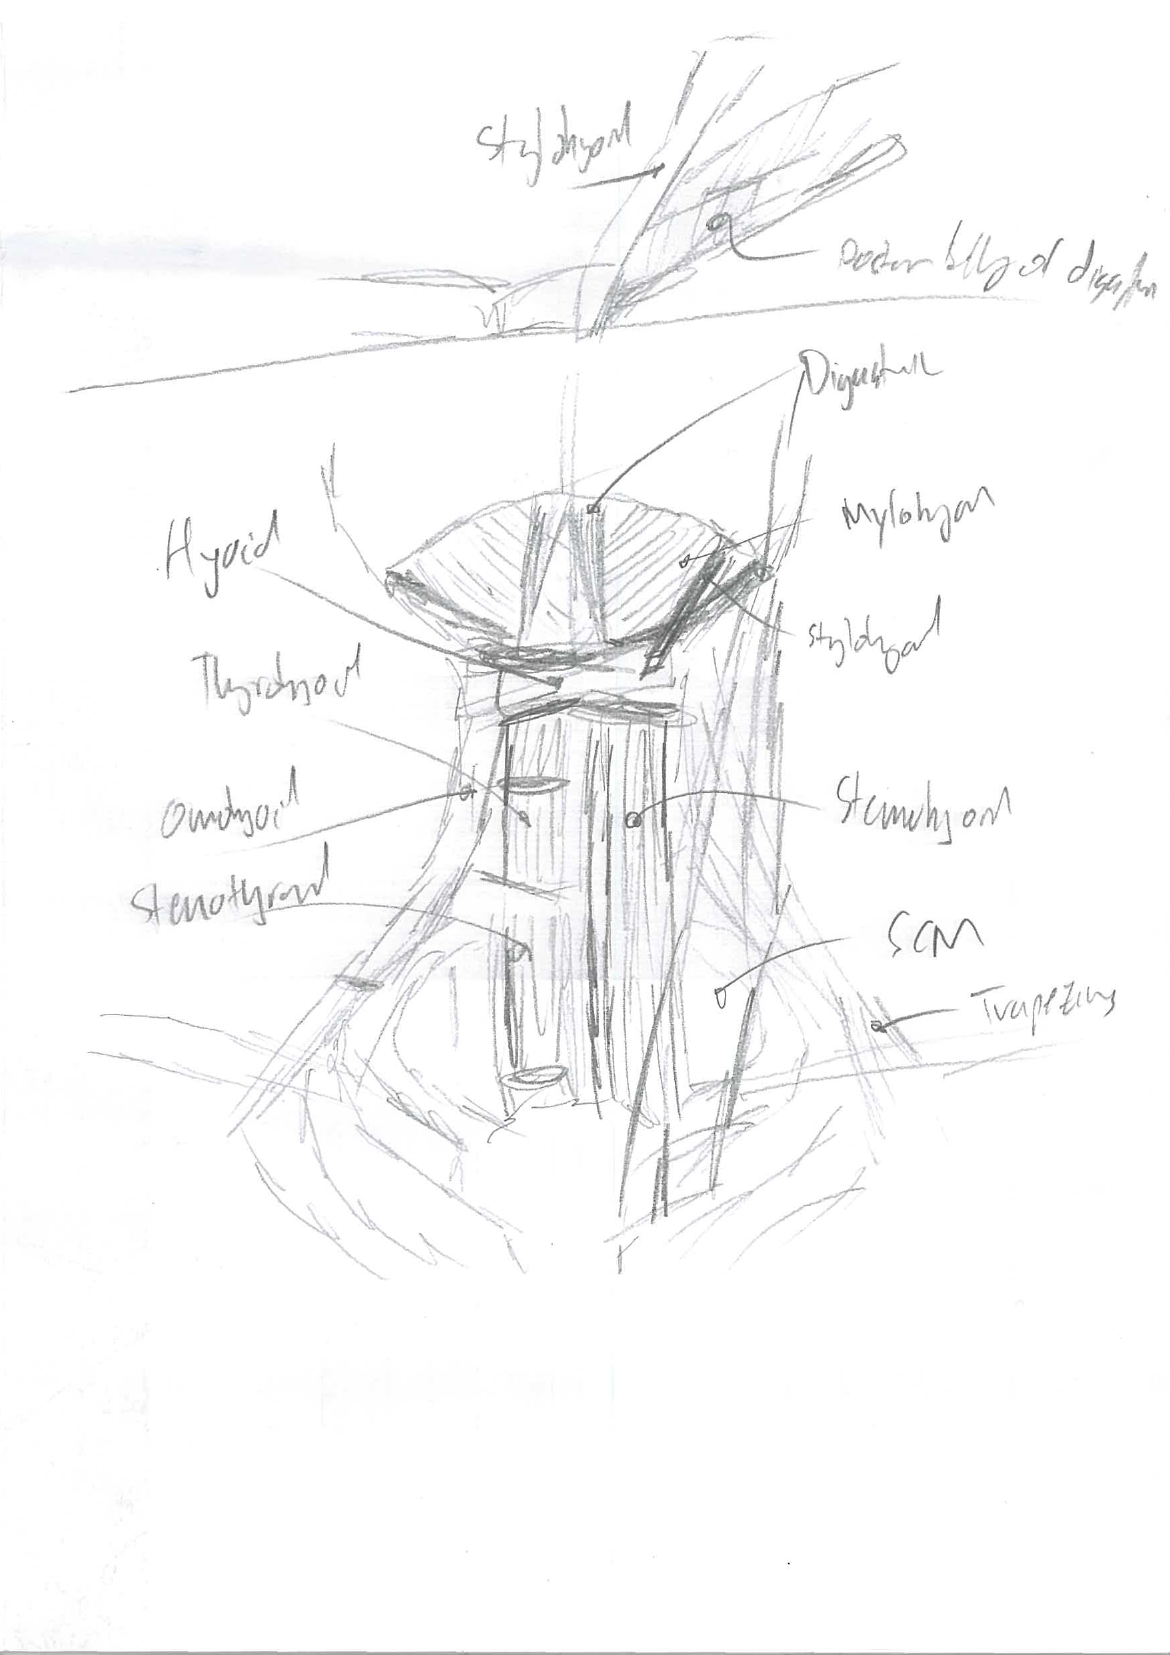 Stylohyoid
Posterior belly of digastric
Digastric
Hyoid
Mylohyoid
Thyrohyoid
Stylohyoid
Omohyoid
Sternohyoid
Sternothyroid
SCM
Trapezius